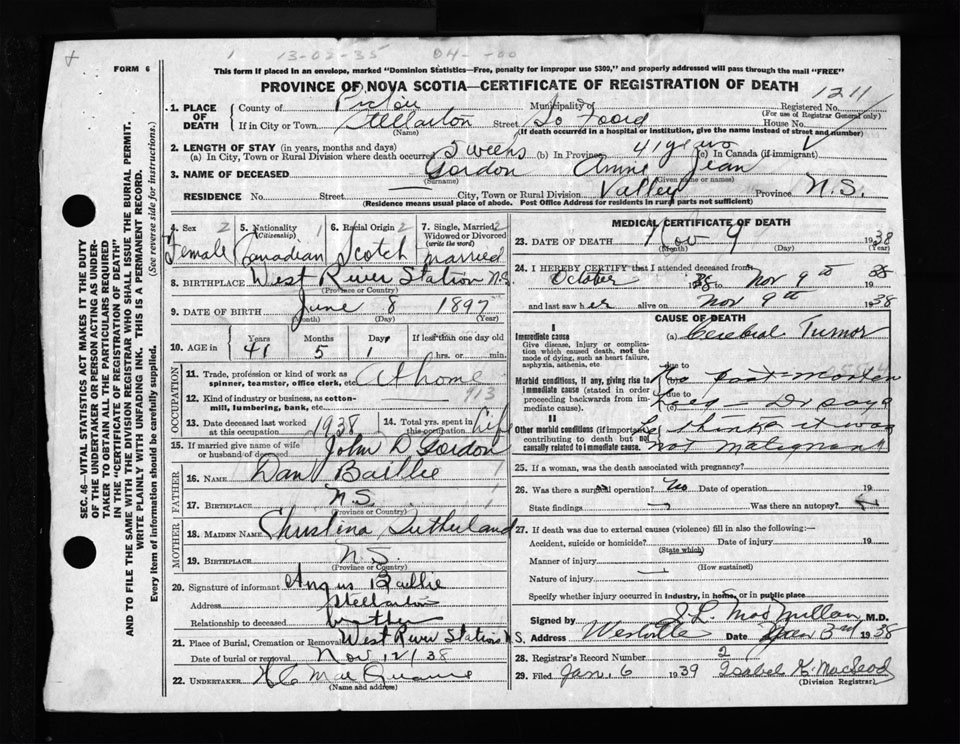 1 13-02-35 04- -00
FORM 6
This form if placed in an envelope, marked "Dominion Statistics—Free, penalty for improper use $300," and properly addressed will pass through the mail "FREE"
PROVINCE OF NOVA SCOTIA—CERTIFICATE OF REGISTRATION OF DEATH
1211
1. PLACE OF DEATH
County of Pictou Municipality of Registered No.
(For use of Registrar General only)
If in City or Town Stellarton Street So Foord House No.
(Name) (If death occurred in a hospital or institution, give the name instead of street and number)
2. LENGTH OF STAY (in years, months and days)
(a) In City, Town or Rural Division where death occurred 5 weeks (b) In Province 41 years (c) In Canada (if immigrant)
3. NAME OF DECEASED Gordon Annie Jean
(Surname) (Given name or names)
RESIDENCE No. Street City, Town or Rural Division Valley Province N.S.
(Residence means usual place of abode. Post Office Address for residents in rural parts not sufficient)
4. Sex 2 Female
5. Nationality (Citizenship) 1 Canadian
6. Racial Origin 2 Scotch
7. Single, Married, Widowed or Divorced (write the word) 2 married
8. BIRTHPLACE West River Station N.S.
(Province or Country)
9. DATE OF BIRTH June 8 1897
(Month) (Day) (Year)
10. AGE in Years Months Days If less than one day old
41 5 1 hrs. or min.
OCCUPATION
11. Trade, profession or kind of work as spinner, teamster, office clerk, etc. At home
12. Kind of industry or business, as cotton-mill, lumbering, bank, etc. 913
13. Date deceased last worked at this occupation 1938
14. Total yrs. spent in this occupation life
15. If married give name of wife or husband of deceased John D Gordon
FATHER
16. NAME Dan Baillie
17. BIRTHPLACE N.S.
(Province or Country)
MOTHER
18. MAIDEN NAME Christena Sutherland
19. BIRTHPLACE N.S.
(Province or Country)
20. Signature of informant Angus Baillie
Address Stellarton
Relationship to deceased brother
21. Place of Burial, Cremation or Removal West River Station N.S.
Date of burial or removal Nov 12/38
22. UNDERTAKER
(Name and address)
MEDICAL CERTIFICATE OF DEATH
23. DATE OF DEATH Nov 9 1938
(Month) (Day) (Year)
24. I HEREBY CERTIFY that I attended deceased from
October 1938 to Nov 9th 1938
and last saw her alive on Nov 9th 1938
CAUSE OF DEATH
I
Immediate cause
Give disease, injury or complication which caused death, not the mode of dying, such as heart failure, asphyxia, asthenia, etc.
(a) Cerebral Tumor
due to
Morbid conditions, if any, giving rise to immediate cause (stated in order proceeding backwards from immediate cause).
No post-mortem
due to
Dr says
II
Other morbid conditions (if important) contributing to death but not causally related to immediate cause.
he thinks it was
not malignant
25. If a woman, was the death associated with pregnancy?
26. Was there a surgical operation? No Date of operation 19
State findings Was there an autopsy?
27. If death was due to external causes (violence) fill in also the following:—
Accident, suicide or homicide? Date of injury 19
(State which)
Manner of injury
(How sustained)
Nature of injury
Specify whether injury occurred in industry, in home, or in public place
Signed by J. L. MacMillan M.D.
Address Westville Date Jan 3rd 1938
28. Registrar's Record Number 2
29. Filed Jan. 6 1939 Isobel K. MacLeod
(Division Registrar)
SEC. 46—VITAL STATISTICS ACT MAKES IT THE DUTY
OF THE UNDERTAKER OR PERSON ACTING AS UNDER-
TAKER TO OBTAIN ALL THE PARTICULARS REQUIRED
IN THE "CERTIFICATE OF REGISTRATION OF DEATH"
AND TO FILE THE SAME WITH THE DIVISION REGISTRAR WHO SHALL ISSUE THE BURIAL PERMIT.
WRITE PLAINLY WITH UNFADING INK. THIS IS A PERMANENT RECORD.
Every item of information should be carefully supplied. (See reverse side for instructions.)